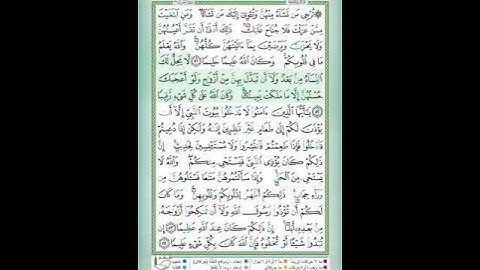 ۞ تُرْجِي مَن تَشَآءُ مِنْهُنَّ وَتُـْٔوِيٓ إِلَيْكَ مَن تَشَآءُۖ وَمَنِ ٱبْتَغَيْتَ
مِمَّنْ عَزَلْتَ فَلَا جُنَاحَ عَلَيْكَۚ ذَٰلِكَ أَدْنَىٰٓ أَن تَقَرَّ أَعْيُنُهُنَّ
وَلَا يَحْزَنَّ وَيَرْضَيْنَ بِمَآ ءَاتَيْتَهُنَّ كُلُّهُنَّۚ وَٱللَّهُ يَعْلَمُ
مَا فِي قُلُوبِكُمْۚ وَكَانَ ٱللَّهُ عَلِيمًا حَلِيمًا ٥١ لَّا يَحِلُّ لَكَ
ٱلنِّسَآءُ مِنۢ بَعْدُ وَلَآ أَن تَبَدَّلَ بِهِنَّ مِنْ أَزْوَٰجٍ وَلَوْ أَعْجَبَكَ
حُسْنُهُنَّ إِلَّا مَا مَلَكَتْ يَمِينُكَۗ وَكَانَ ٱللَّهُ عَلَىٰ كُلِّ شَيْءٍ رَّقِيبًا
٥٢ يَٰٓأَيُّهَا ٱلَّذِينَ ءَامَنُوا۟ لَا تَدْخُلُوا۟ بُيُوتَ ٱلنَّبِيِّ إِلَّآ أَن
يُؤْذَنَ لَكُمْ إِلَىٰ طَعَامٍ غَيْرَ نَٰظِرِينَ إِنَىٰهُ وَلَٰكِنْ إِذَا دُعِيتُمْ
فَٱدْخُلُوا۟ فَإِذَا طَعِمْتُمْ فَٱنتَشِرُوا۟ وَلَا مُسْتَـْٔنِسِينَ لِحَدِيثٍۚ إِنَّ
ذَٰلِكُمْ كَانَ يُؤْذِي ٱلنَّبِيَّ فَيَسْتَحْيِۦ مِنكُمْۖ وَٱللَّهُ لَا
يَسْتَحْيِۦ مِنَ ٱلْحَقِّۚ وَإِذَا سَأَلْتُمُوهُنَّ مَتَٰعًا فَسْـَٔلُوهُنَّ مِن
وَرَآءِ حِجَابٍۚ ذَٰلِكُمْ أَطْهَرُ لِقُلُوبِكُمْ وَقُلُوبِهِنَّۚ وَمَا كَانَ
لَكُمْ أَن تُؤْذُوا۟ رَسُولَ ٱللَّهِ وَلَآ أَن تَنكِحُوٓا۟ أَزْوَٰجَهُۥ
مِنۢ بَعْدِهِۦٓ أَبَدًاۚ إِنَّ ذَٰلِكُمْ كَانَ عِندَ ٱللَّهِ عَظِيمًا ٥٣ إِن
تُبْدُوا۟ شَيْـًٔا أَوْ تُخْفُوهُ فَإِنَّ ٱللَّهَ كَانَ بِكُلِّ شَيْءٍ عَلِيمًا ٥٤